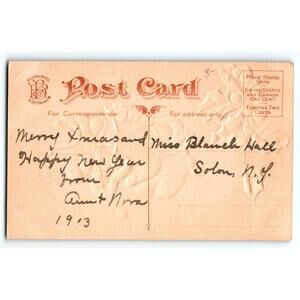 Post Card
Place Stamp
here
United States
and Canada
One Cent.
Foreign, Two
Cents.
For Correspondence
For address only
Merry Xmas and
Happy New Year
from
Aunt Nora
1913
Miss Blanche Hall
Solon, N.Y.